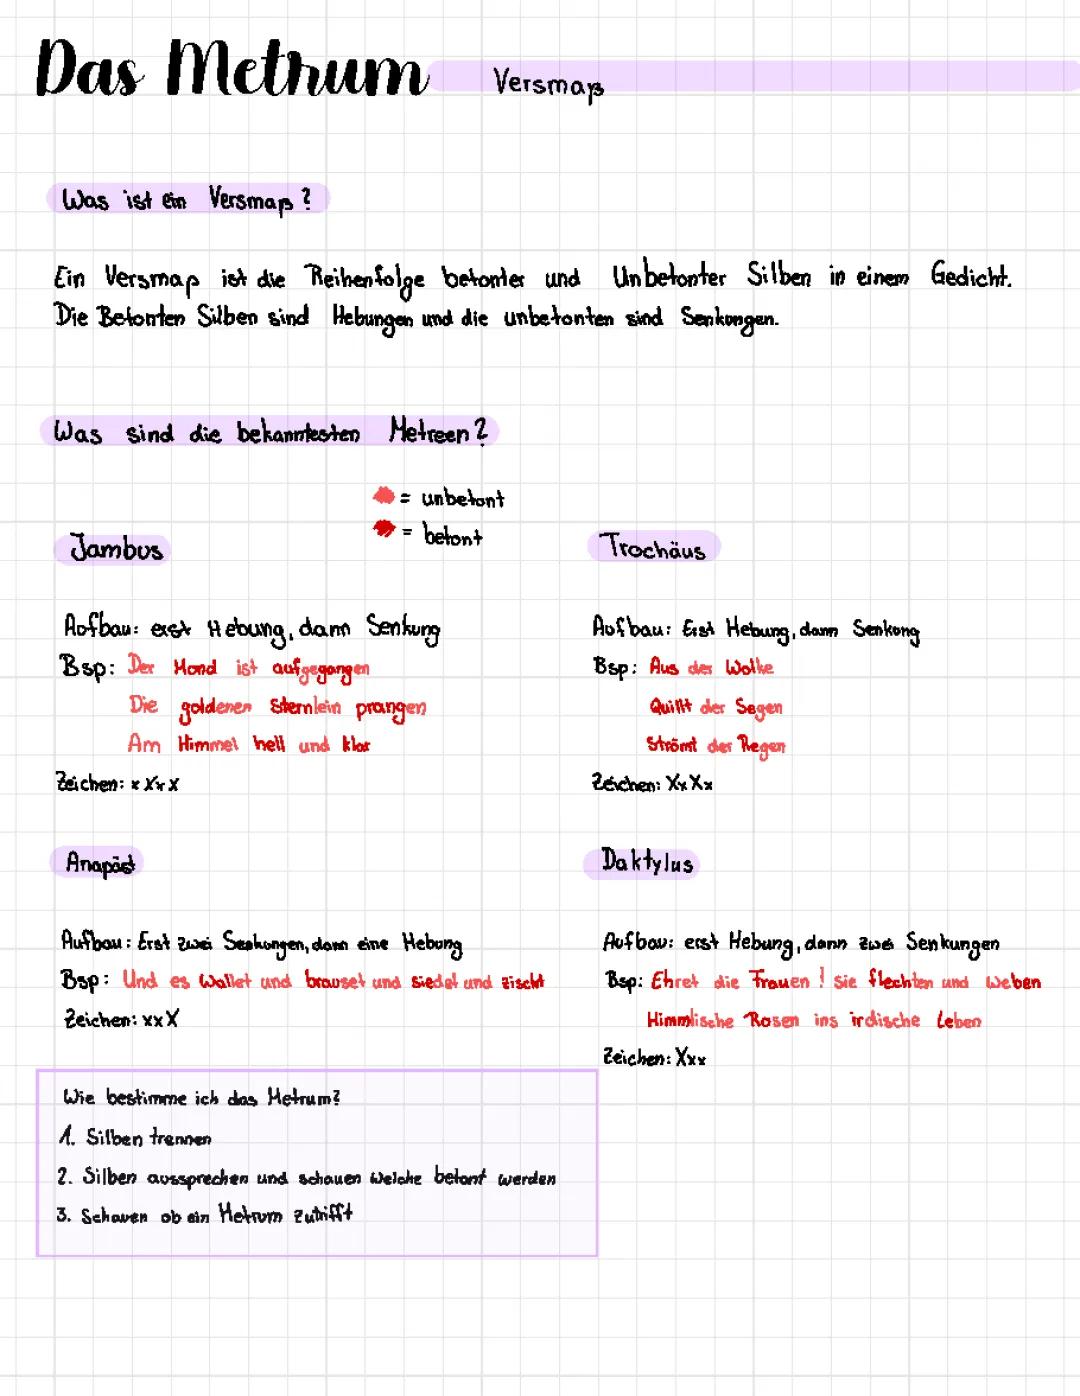 Das Metrum Versmaß
Was ist ein Versmaß?
Ein Versmaß ist die Reihenfolge betonter und Unbetonter Silben in einem Gedicht.
Die Betonten Silben sind Hebungen und die unbetonten sind Senkungen.
Was sind die bekanntesten Metreen?
= unbetont
= betont
Jambus
Aufbau: erst Hebung, dann Senkung
Bsp: Der Mond ist aufgegangen
Die goldenen Sternlein prangen
Am Himmel hell und klar
Zeichen: xXxX
Trochäus
Aufbau: Erst Hebung, dann Senkung
Bsp: Aus der Wolke
Quillt der Segen
Strömt der Regen
Zeichen: XxXx
Anapäst
Aufbau: Erst zwei Senkungen, dann eine Hebung
Bsp: Und es wallet und brauset und siedet und zischt
Zeichen: xxX
Daktylus
Aufbau: erst Hebung, dann zwei Senkungen
Bsp: Ehret die Frauen! Sie flechten und weben
Himmlische Rosen ins irdische Leben
Zeichen: Xxx
Wie bestimme ich das Metrum?
1. Silben trennen
2. Silben aussprechen und schauen welche betont werden
3. Schauen ob ein Metrum zutrifft